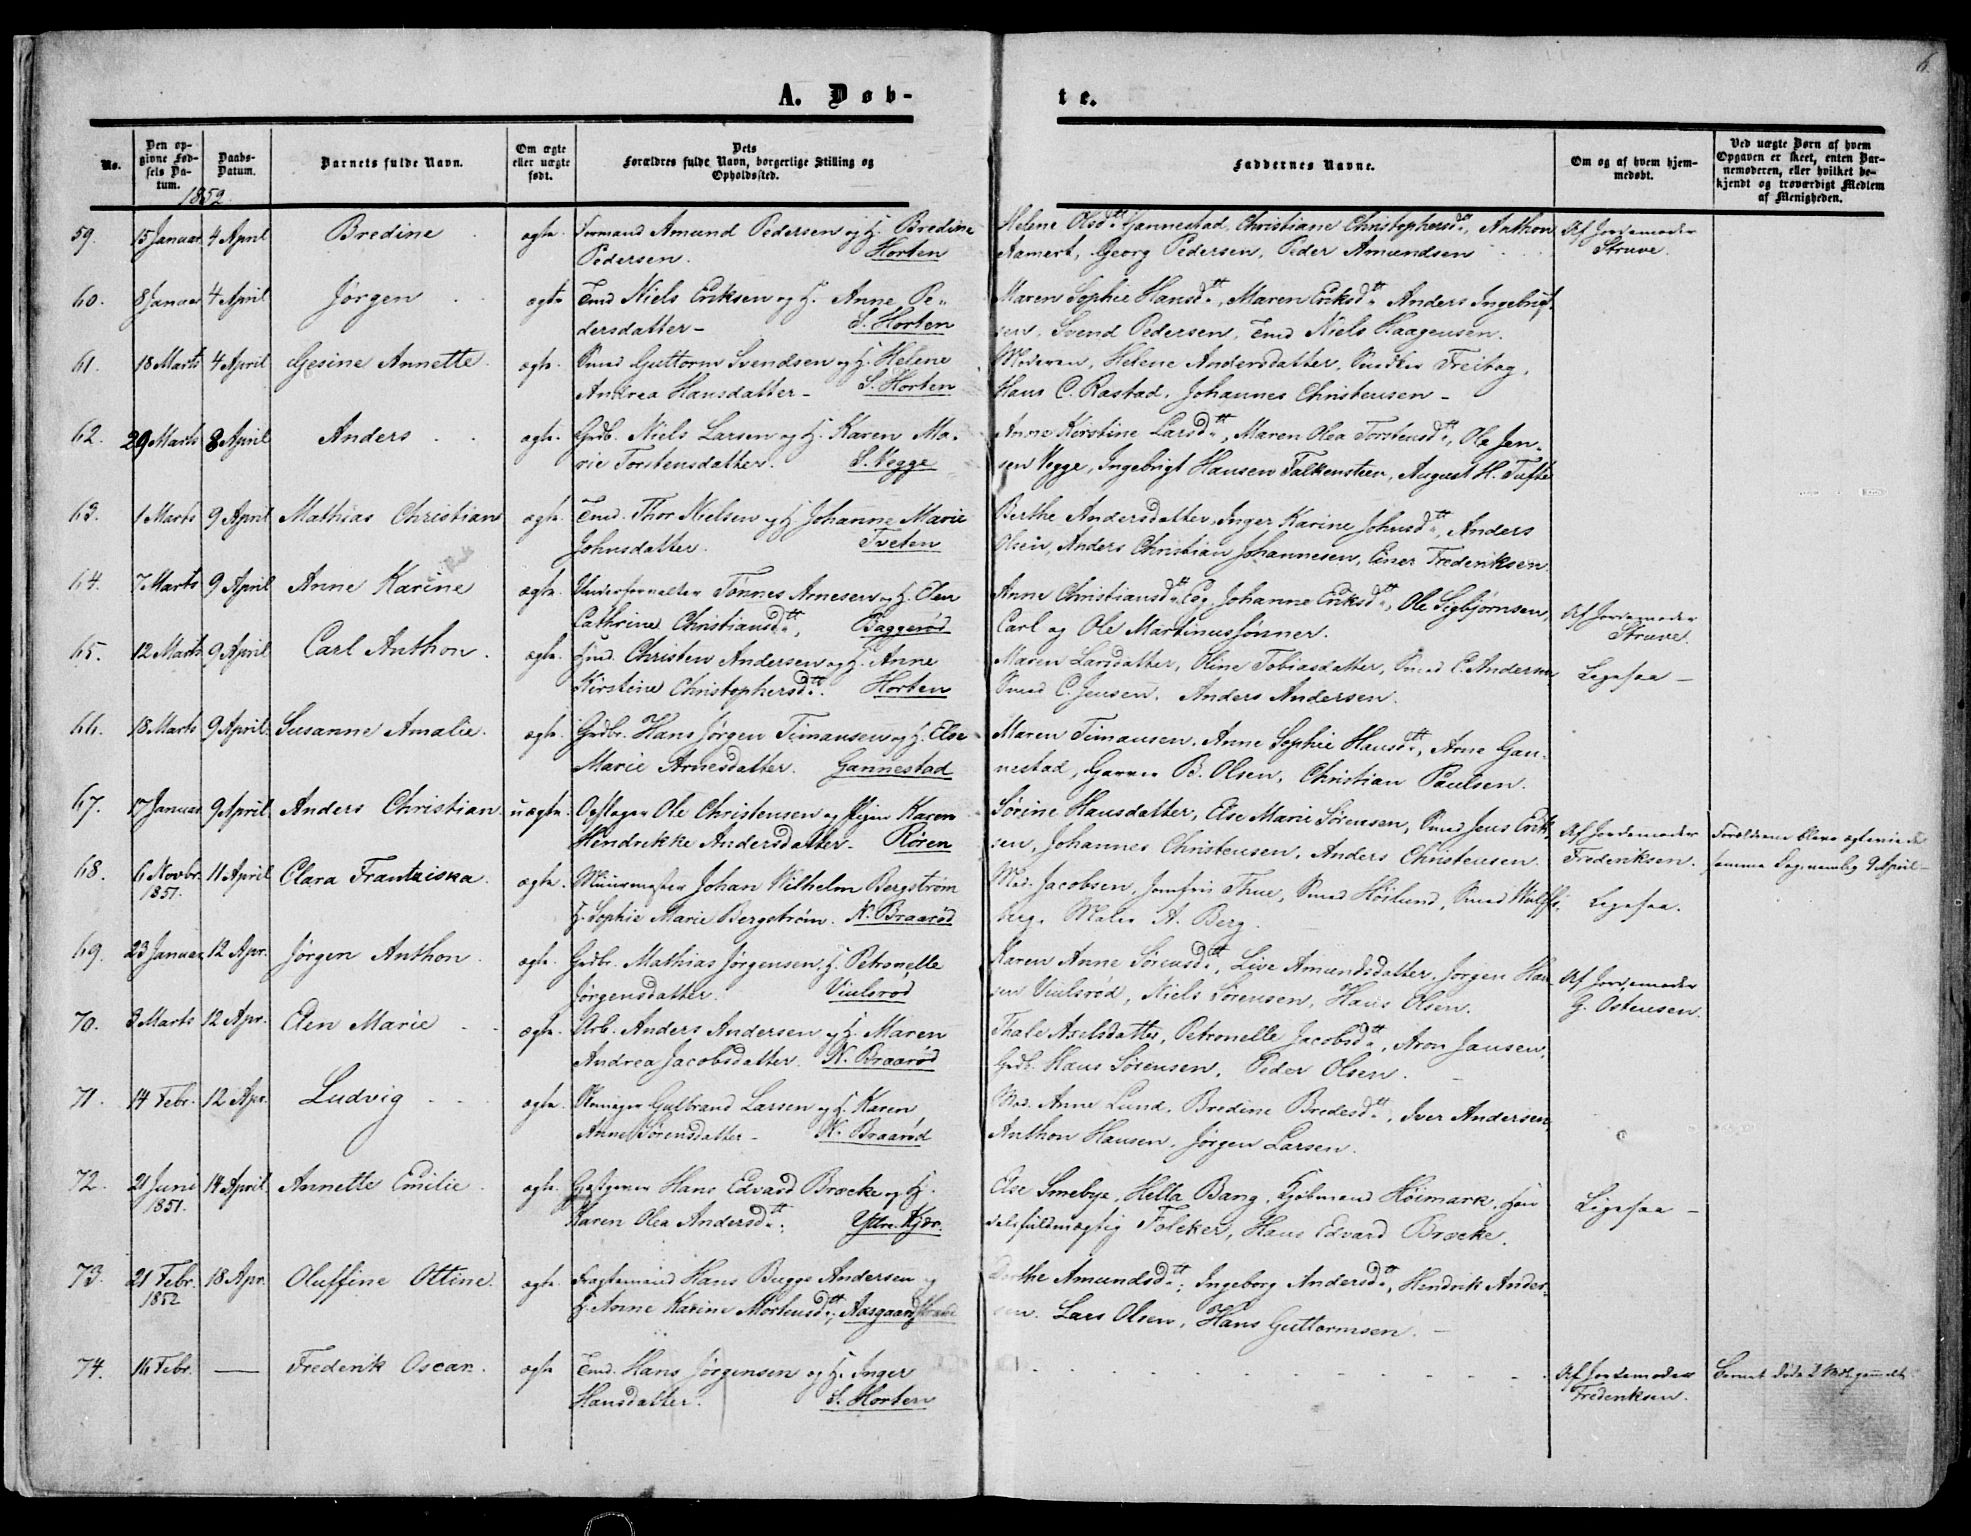 6.
A. Døb-
te.
No.
Den opgivne Fødsels Datum.
Daabs-Datum.
Barnets fulde Navn.
Om ægte eller uægte født.
Dets Forældres fulde Navn, borgerlige Stilling og Opholdssted.
Faddernes Navne.
Om og af hvem hjemmedøbt.
Ved uægte Børn af hvem Opgaven er skeet, enten Barnemoderen, eller hvilket bekjendt og troværdigt Medlem af Menigheden.
1852.
59. 15 Januar 4 April Bredine ægte. Formand Amund Pedersen og H. Bredine
Pedersen. Horten
Helene Olsdtr Gannestad, Christiane Christophersdtr, Anthon
Aamert, Georg Pedersen, Peder Amundsen
Af Jordemoder
Struve.
60. 8 Januar 4 April Jørgen ægte Tmd Niels Eriksen og H. Anne Pe-
dersdatter - S. Horten
Maren Sophie Hansdtr, Maren Eriksdtr Anders Ingebrigt-
sen, Svend Pedersen, Tmd Niels Haagensen.
61. 18 Marts 4 April Gesine Annette. ægte. Smed Guttorm Svendsen og H. Helene
Andrea Hansdatter - S. Horten
Moderen, Helene Andersdatter, Snedker Freitag,
Hans C. Rastad, Johannes Christensen -
62. 29 Marts 8 April Anders ægte. Grdb. Niels Larsen og H. Karen Ma-
rie Torstensdatter. S. Vegge.
Anne Kirstine Larsdtr, Maren Olea Torstensdtr, Ole Jen-
sen Vegge, Ingebrigt Hansen Falkensteen, August H. Tufte
63. 1 Marts 9 April Mathias Christian ægte. Tmd. Thor Nielsen og H. Johanne Marie
Johnsdatter. Tveten
Berthe Andersdatter, Inger Karine Johnsdtr, Anders
Olsen, Anders Christian Johannesen, Einer Frederiksen.
64. 7 Marts 9 April Anne Karine ægte. Underforvalter Tønnes Arnesen og H. Elen
Cathrine Christiansdtr, Baggerød
Anne Christiansdtr og Johanne Eriksdtr, Ole Sigbjørnsen,
Carl og Ole Martinussønner.
Af Jordemoder
Struve.
65. 12 Marts 9 April Carl Anthon. ægte. Hmd. Christen Andersen og H. Anne
Kirstine Christophersdtr. Horten
Maren Larsdatter, Oline Tobiasdatter, Smed C. Andersen
Smed C. Jensen, Anders Andersen.
Ligesaa -
66. 18 Marts 9 April Susanne Amalie. ægte. Grdbr. Hans Jørgen Timansen og H. Else
Marie Arnesdatter. Gannestad
Maren Timansen, Anne Sophie Hansdtr, Arne Gan-
nestad, Garver B. Olsen, Christian Paulsen.
67. 17 Januar 9 April Anders Christian. uægte. Opslager Ole Christensen og Pigen Karen
Hendrikke Andersdatter - Røren
Sørine Hansdatter, Else Marie Sørensen, Smed Jens Erik-
sen, Johannes Christensen, Anders Christensen.
Af Jordemoder
Frederiksen.
Forældrene bleve ægteviede
samme Dag nemlig 9 April -
68. 6 Novbr. 1851. 11 April Clara Frantziska. ægte. Muurmester Johan Wilhelm Bergstrøm
H. Sophie Marie Bergstrøm. N. Braarød
Mad. Jacobsen, Jomfru Thue, Smed Høslund, Smed Wulfs-
berg, Maler A. Berg.
Ligesaa.
69. 23 Januar 12 Apr. Jørgen Anthon. ægte. Grdbr. Mathias Jørgensen, H. Petronelle
Jørgensdatter. Viulsrød
Karen Anne Sørensdtr, Live Amundsdatter, Jørgen Han-
sen Viulsrød, Niels Sørensen, Hans Olsen.
Af Jordemoder
G. Ostensen.
70. 3 Marts 12 Apr. Elen Marie ægte. Arb. Anders Andersen og H. Maren
Andrea Jacobsdatter. N. Braarød
Thale Axelsdatter, Petronelle Jacobsdtr, Aron Jansen,
Grdb. Hans Sørensen, Peder Olsen.
71. 14 Febr. 12 Apr. Ludvig ægte. Gulbrand Larsen og H. Karen
Anne Sørensdatter - N. Braarød
Mad. Anne Lund, Bredine Bredesdtr, Iver Andersen,
Anthon Hansen, Jørgen Larsen.
72. 21 Juni 1851. 14 April Annette Emilie. ægte. Gjestgiver Hans Edvard Brocke og H.
Karen Olea Andersdtr. Yttre Kjær.
Else Smebye, Hella Bang, Kjøbmand Høimark, Han-
delsfuldmægtig Folcker, Hans Edvard Brocke.
Ligesaa -
73. 21 Febr. 1852 18 Apr. Oluffine Ottine. ægte. Fragtemand Hans Bugge Andersen og
H. Anne Karine Mortensdtr, Aasgaardstrand
Dorthe Amundsdtr; Ingeborg Andersdtr, Hendrik Ander-
sen, Lars Olsen, Hans Guttormsen. -
74. 16 Febr. — Frederik Oscar. ægte Tmd. Hans Jørgensen og H. Inger
Hansdatter. S. Horten
Af Jordemoder
Frederiksen.
Barnet døde 2 Mdr. gammelt